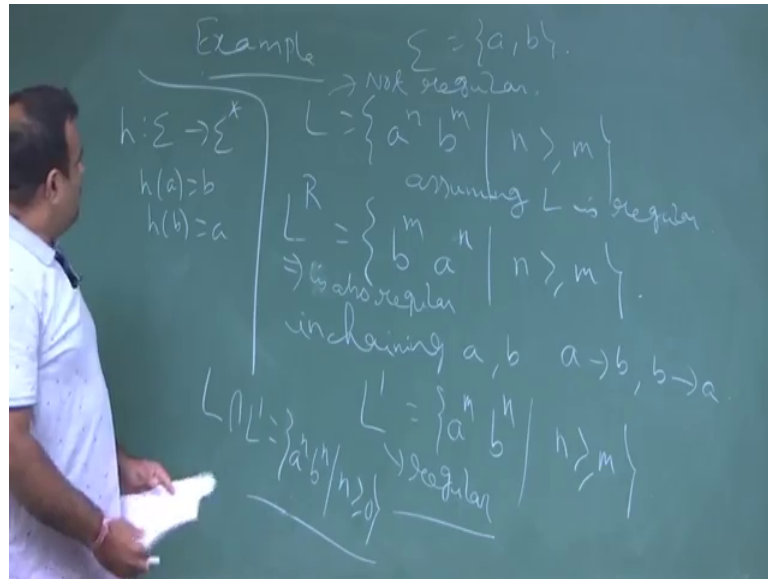 Example Σ = {a, b}.
→ Not regular.
h: Σ → Σ*
h(a) = b
h(b) = a
L = { aⁿ bᵐ | n ≥, m }
assuming L is regular.
Lᴿ = { bᵐ aⁿ | n ≥, m }.
⇒ is also regular
inchaining a, b a → b, b → a.
L' = { aᵐ bⁿ | n ≥ m }
→ regular
L ∩ L' = { aⁿ bⁿ | n ≥ 0 }